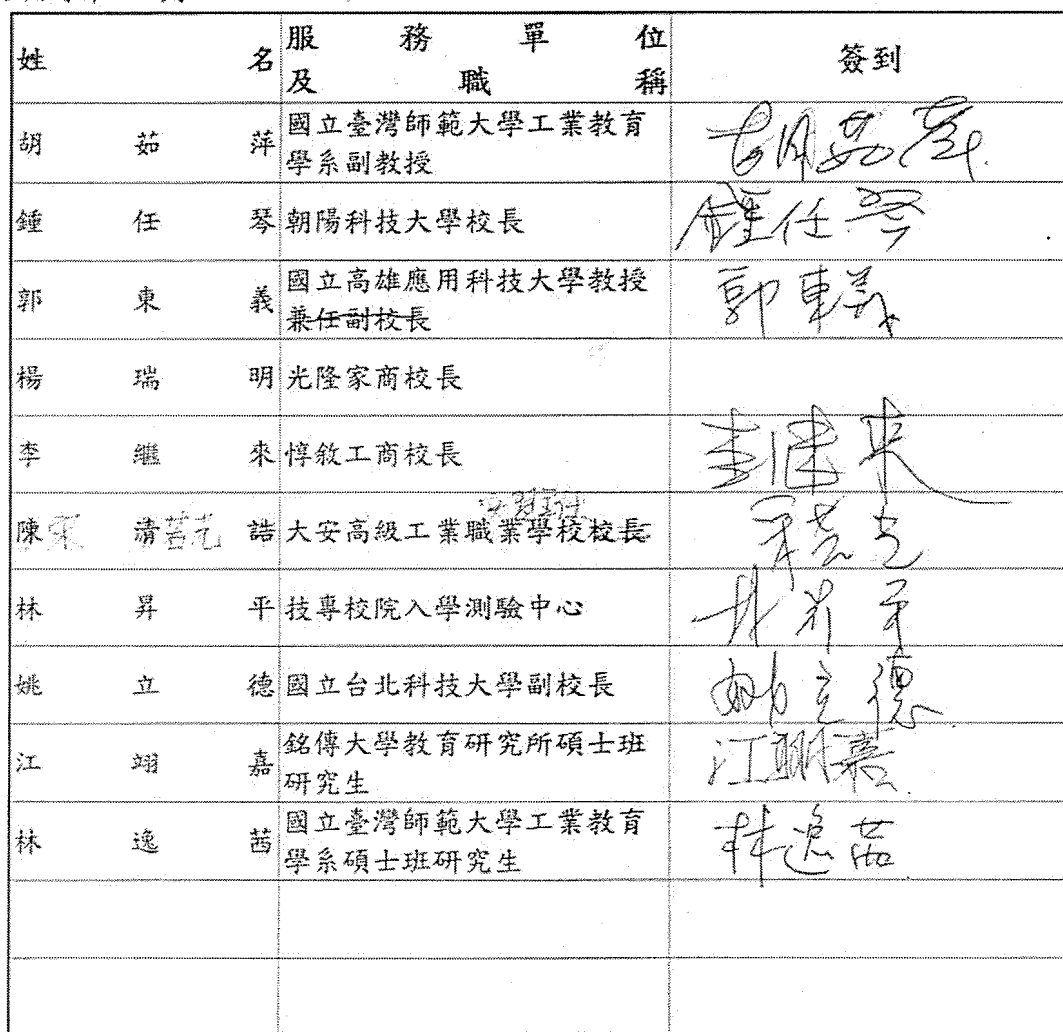 姓名 服務單位 簽到
及職稱
胡茹萍 國立臺灣師範大學工業教育 胡茹萍
學系副教授
鍾任琴 朝陽科技大學校長 鍾任琴
郭東義 國立高雄應用科技大學教授 郭東義
兼任副校長
楊瑞明 光隆家商校長
李繼來 惇敘工商校長 李繼來
陳清誥 大安高級工業職業學校校長
林昇平 技專校院入學測驗中心 林昇平
姚立德 國立台北科技大學副校長 姚立德
江翊嘉 銘傳大學教育研究所碩士班 江翊嘉
研究生
林逸茜 國立臺灣師範大學工業教育 林逸茜
學系碩士班研究生